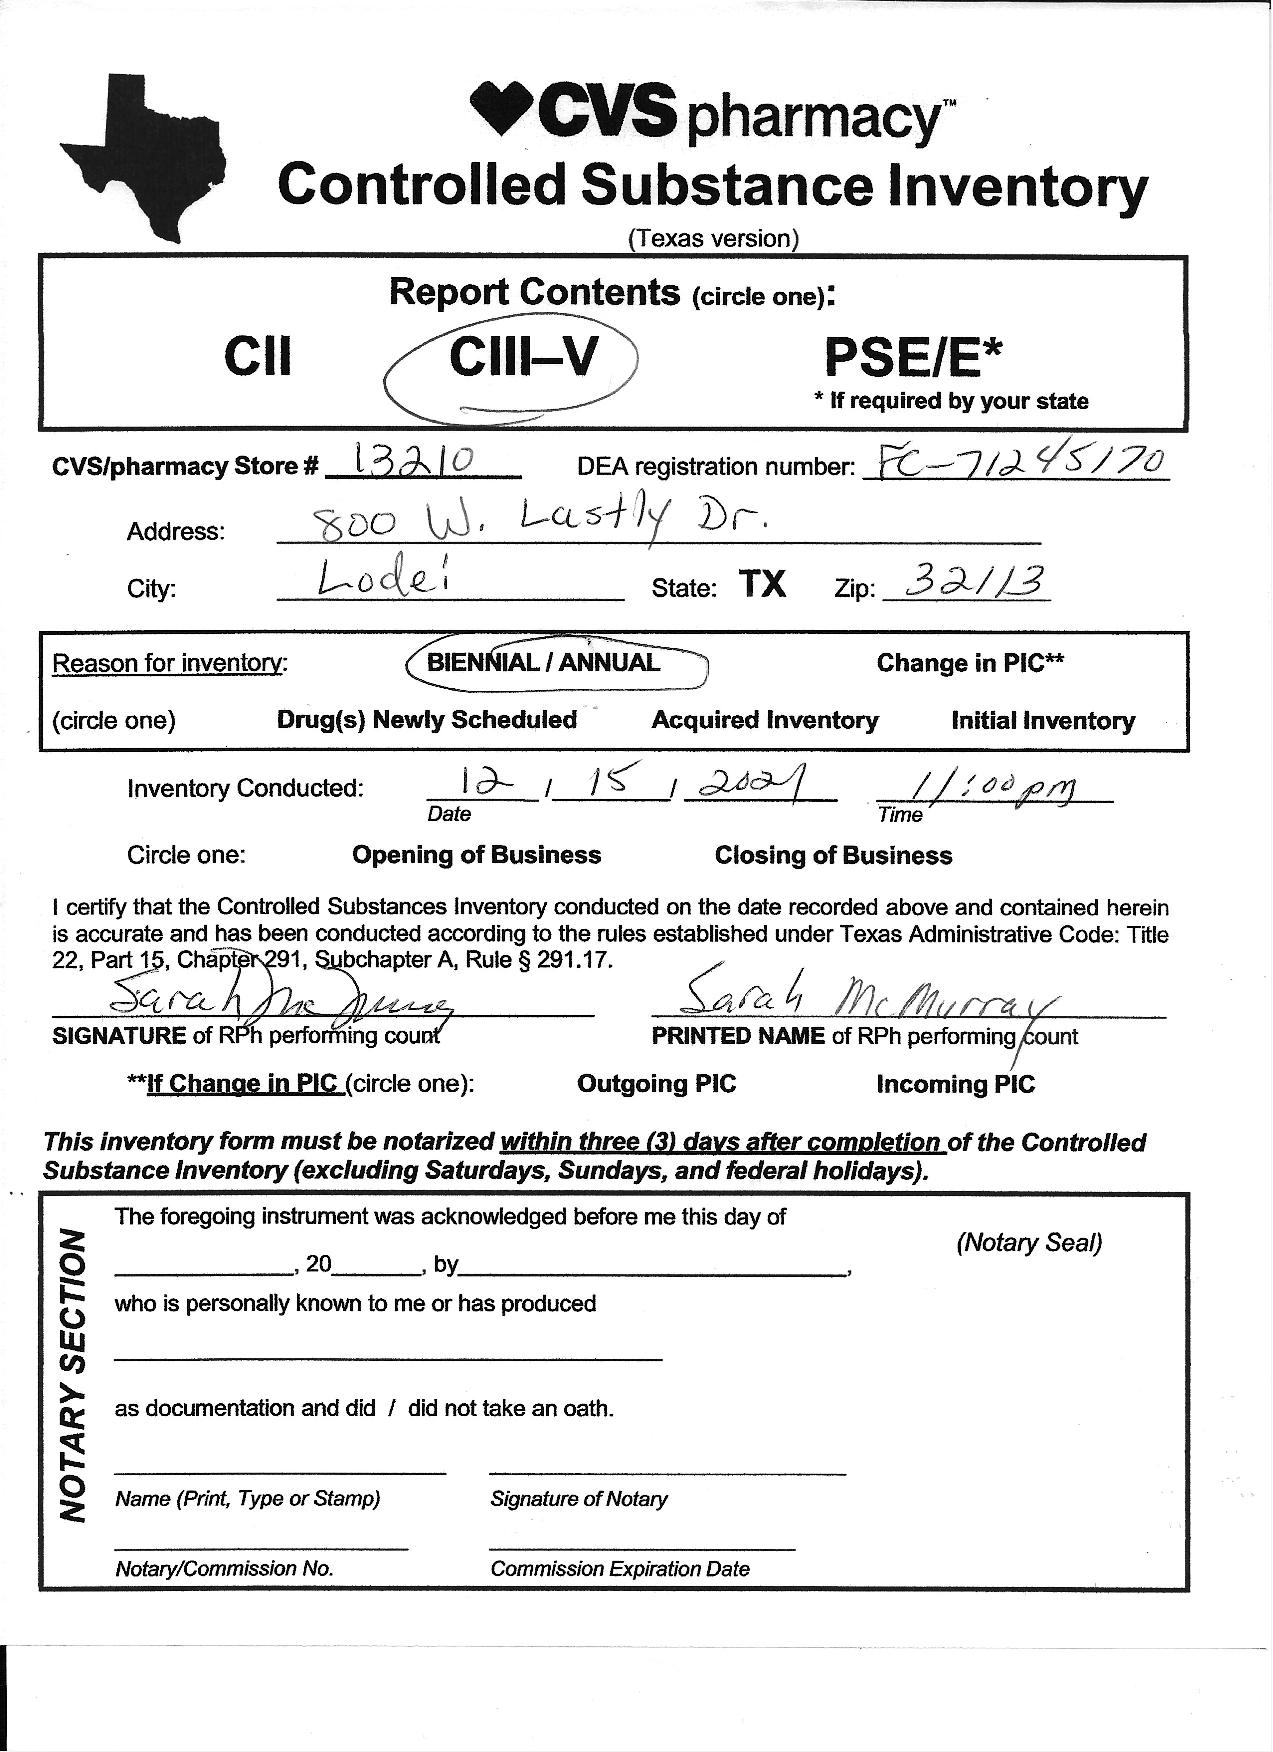 CVS pharmacy™
Controlled Substance Inventory
(Texas version)
Report Contents (circle one):
CII CIII–V PSE/E*
* If required by your state
CVS/pharmacy Store # 13210 DEA registration number: FC-71245170
Address: 800 W. Lastly Dr.
City: Lodei State: TX Zip: 32113
Reason for inventory: BIENNIAL / ANNUAL Change in PIC**
(circle one) Drug(s) Newly Scheduled Acquired Inventory Initial Inventory
Inventory Conducted: 12 / 15 / 2021 11:00 pm
Date Time
Circle one: Opening of Business Closing of Business
I certify that the Controlled Substances Inventory conducted on the date recorded above and contained herein
is accurate and has been conducted according to the rules established under Texas Administrative Code: Title
22, Part 15, Chapter 291, Subchapter A, Rule § 291.17.
Sarah Sarah McMurray
SIGNATURE of RPh performing count PRINTED NAME of RPh performing count
**If Change in PIC (circle one): Outgoing PIC Incoming PIC
This inventory form must be notarized within three (3) days after completion of the Controlled
Substance Inventory (excluding Saturdays, Sundays, and federal holidays).
NOTARY SECTION
The foregoing instrument was acknowledged before me this day of
(Notary Seal)
____________, 20______, by__________________________,
who is personally known to me or has produced
as documentation and did / did not take an oath.
Name (Print, Type or Stamp) Signature of Notary
Notary/Commission No. Commission Expiration Date